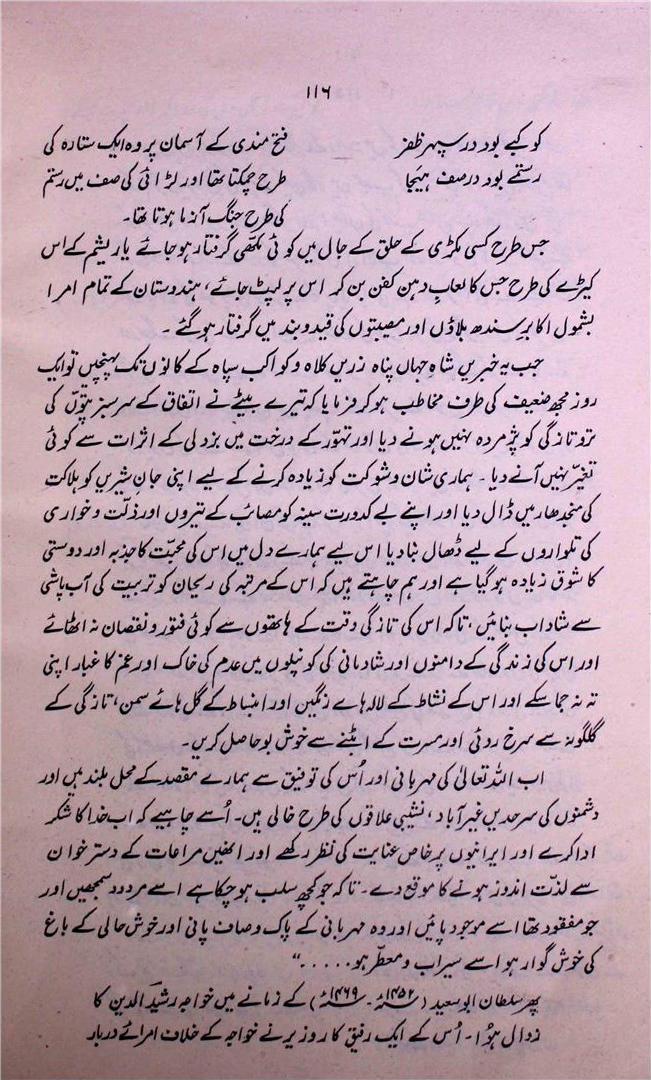 ۱۱۶
کوکبے بود در سپہر ظفر فتح مندی کے آسمان پر وہ ایک ستارہ کی
رستمے بود در صف ہیجا طرح چمکتا تھا اور لڑائی کی صف میں رستم
کی طرح جنگ آزما ہوتا تھا۔
جس طرح کسی مکڑی کے حلق کے جال میں کوئی مکھی گرفتار ہو جائے یا ریشم کے اس
کیڑے کی طرح جس کا لعابِ دہن کفن بن کر اس پر لپٹ جائے، ہندوستان کے تمام امرا
بشمول اکابرِ سندھ بلاؤں اور مصیبتوں کی قید و بند میں گرفتار ہو گئے۔
جب یہ خبریں شاہِ جہاں پناہ زریں کلاہ و کواکب سپاہ کے کانوں تک پہنچیں تو ایک
روز مجھ ضعیف کی طرف مخاطب ہو کر فرمایا کہ تیرے بیٹے نے اتفاق کے سرسبز پتوں کی
تر و تازگی کو پژمردہ نہیں ہونے دیا اور تہوّر کے درخت میں بزدلی کے اثرات سے کوئی
تغیّر نہیں آنے دیا۔ ہماری شان و شوکت کو زیادہ کرنے کے لیے اپنی جانِ شیریں کو ہلاکت
کی منجدھار میں ڈال دیا اور اپنے بے کدورت سینہ کو مصائب کے تیروں اور ذلّت و خواری
کی تلواروں کے لیے ڈھال بنا دیا اس لیے ہمارے دل میں اس کی محبّت کا جذبہ اور دوستی
کا شوق زیادہ ہو گیا ہے اور ہم چاہتے ہیں کہ اس کے مرتبہ کی ریحان کو تربیت کی آب پاشی
سے شاداب بنائیں، تاکہ اس کی تازگی وقت کے ہاتھوں سے کوئی فتور و نقصان نہ اٹھائے
اور اس کی زندگی کے دامنوں اور شادمانی کی کونپلوں میں عدم کی خاک اور غم کا غبار اپنی
تہ نہ جما سکے اور اس کے نشاط کے لالہ ہاے رنگیں اور انبساط کے گل ہائے سمن، تازگی کے
گلگونہ سے سرخ روئی اور مسرت کے ابٹنے سے خوش بو حاصل کریں۔
اب اللہ تعالیٰ کی مہربانی اور اُس کی توفیق سے ہمارے مقصد کے محل بلند ہیں اور
دشمنوں کی سرحدیں غیر آباد، نشیبی علاقوں کی طرح خالی ہیں۔ اُسے چاہیے کہ اب خدا کا شکر
ادا کرے اور ایرانیوں پر خاص عنایت کی نظر رکھے اور انھیں مراعات کے دسترخوان
سے لذّت اندوز ہونے کا موقع دے۔ تاکہ جو کچھ سلب ہو چکا ہے اسے مردود سمجھیں اور
جو مفقود تھا اسے موجود پائیں اور وہ مہربانی کے پاک و صاف پانی اور خوش حالی کے باغ
کی خوش گوار ہوا سے سیراب و معطّر ہو.....“
پھر سلطان ابو سعید (۱۴۵۲ء۔ ۱۴۶۹ء) کے زمانے میں خواجہ رشید الدین کا
زوال ہؤا۔ اُس کے ایک رفیقِ کار وزیر نے خواجہ کے خلاف امرائے دربار